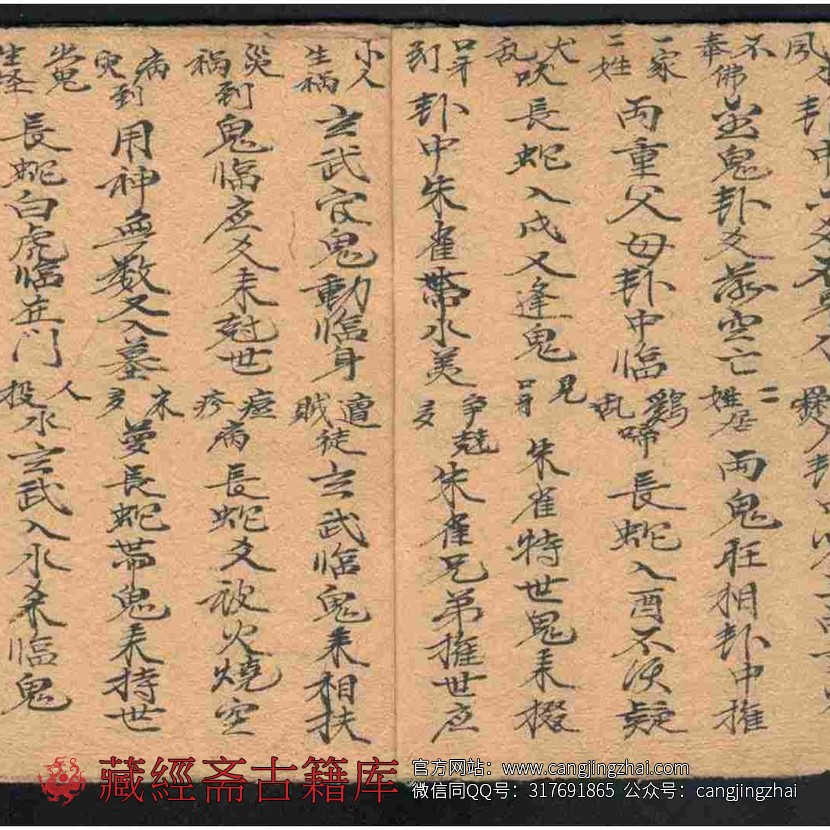 卦中
人卦中
不奉佛 並鬼卦爻落空亡
二姓居 兩鬼旺相卦中推
一家二姓 両重父母卦中臨
鷄乱啼 長蛇入酉不須疑
犬乱吠 長蛇入戌又逢鬼
見口舌 朱雀持世鬼来掇
口舌到 卦中朱雀帶水美
争競多 朱雀兄弟推世应
小人生禍 玄武官鬼動臨身
遭賊徒 玄武臨鬼来相扶
災禍到 鬼臨应爻来尅世
瘟疹病 長蛇爻被火燒空
病到 用神無数又入墓
夢 長蛇帶鬼来持世
生怪 長蛇白虎臨在門
人投水 玄武入水来臨鬼
藏經斋古籍库
官方网站：www.cangjingzhai.com
微信同QQ号：317691865 公众号：cangjingzhai